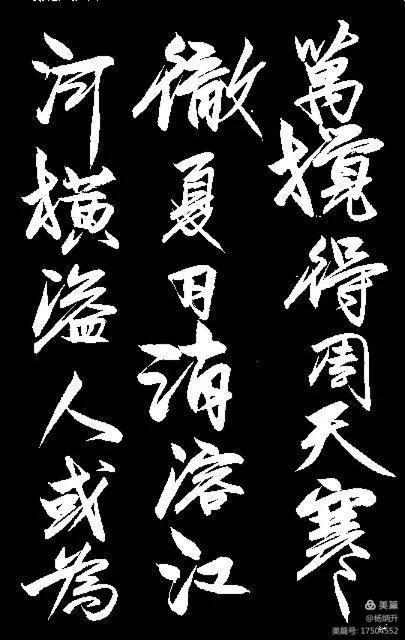 萬攪得周天寒
徹夏日消溶江
河横溢人或為
美篇
@杨炳升
美篇号: